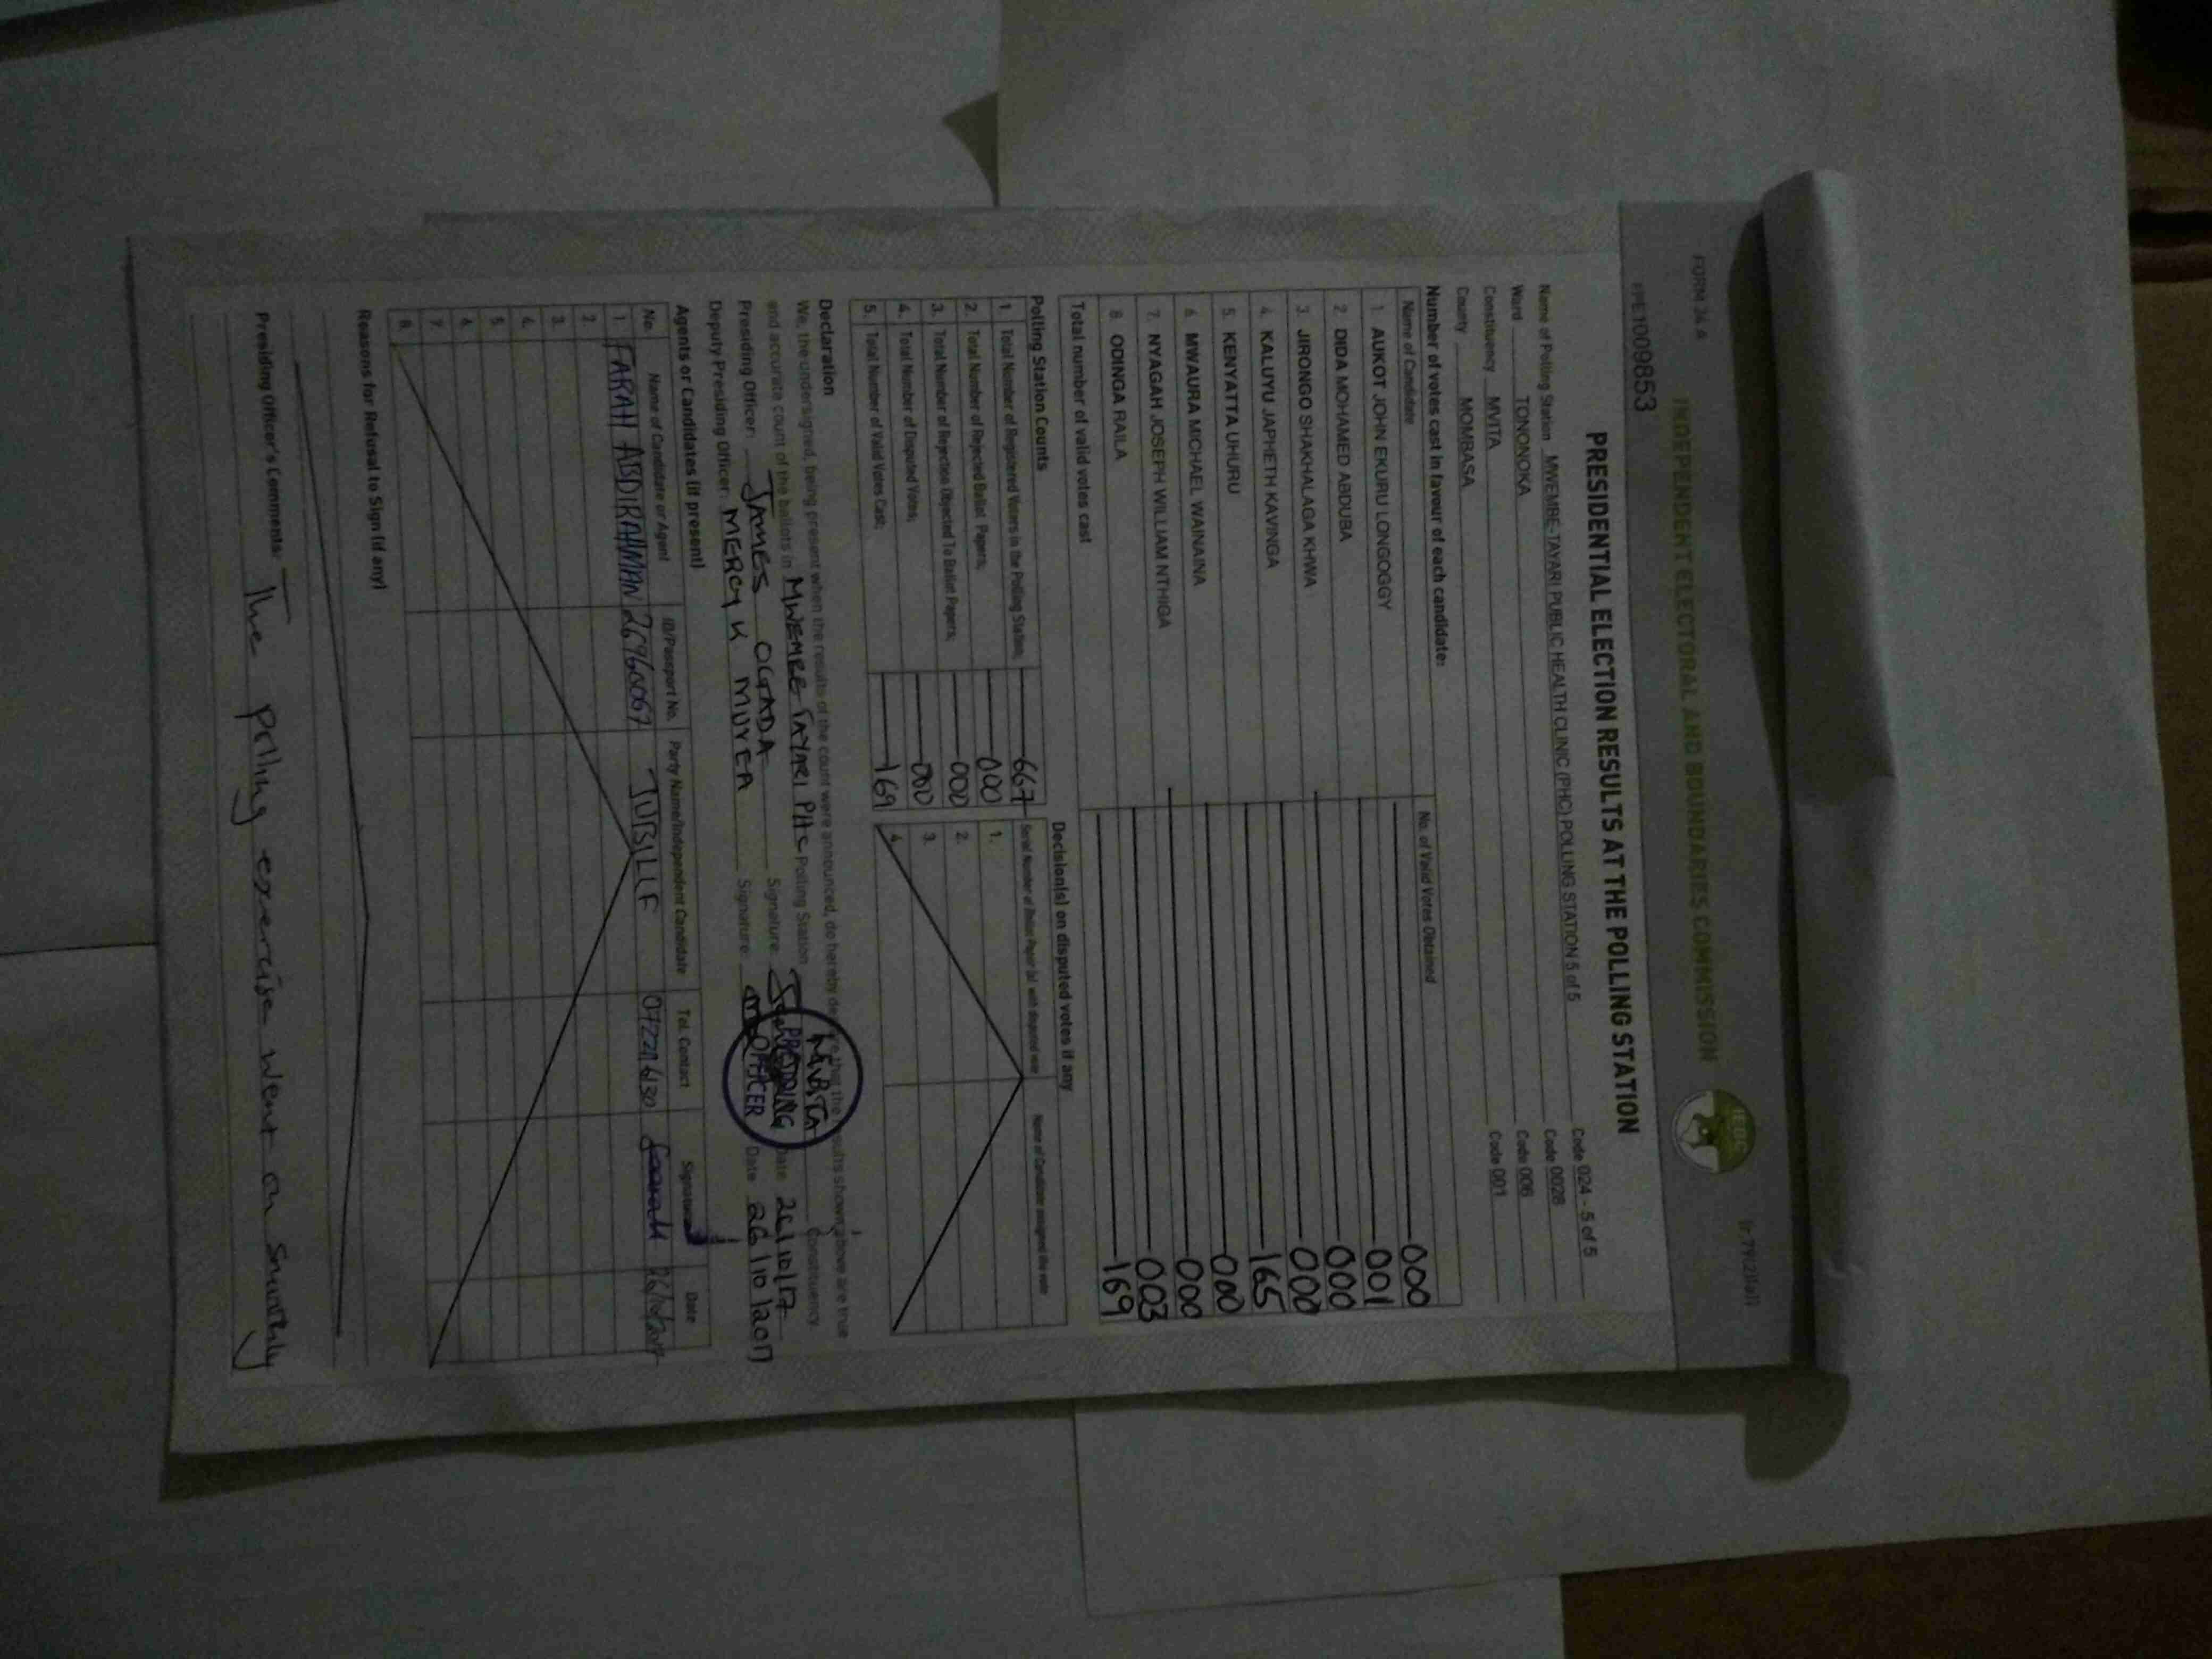 FORM 34 A
INDEPENDENT ELECTORAL AND BOUNDARIES COMMISSION
IEBC
(r.79(2)(a))
PRESIDENTIAL ELECTION RESULTS AT THE POLLING STATION
Name of Polling Station MWEMBE TAYARI PUBLIC HEALTH CLINIC (PHC) POLLING STATION 5 of 5 Code 024 - 5 of 5
Ward TONONOKA Code 0028
Constituency MVITA Code 006
County MOMBASA Code 001
Number of votes cast in favour of each candidate:
Name of Candidate No. of Valid Votes Obtained
1. AUKOT JOHN EKURU LONGOGGY 000
2. DIDA MOHAMED ABDUBA 001
3. JIRONGO SHAKHALAGA KHWA 000
4. KALUYU JAPHETH KAVINGA 000
5. KENYATTA UHURU 165
6. MWAURA MICHAEL WAINAINA 000
7. NYAGAH JOSEPH WILLIAM NTHIGA 000
8. ODINGA RAILA 003
Total number of valid votes cast 169
Polling Station Counts
1. Total Number of Registered Voters in the Polling Station; 667
2. Total Number of Rejected Ballot Papers; 000
3. Total Number of Rejection Objected To Ballot Papers; 000
4. Total Number of Disputed Votes; 000
5. Total Number of Valid Votes Cast; 169
Decision(s) on disputed votes if any
Serial Number of Ballot Paper (s) with disputed vote Name of Candidate assigned the vote
1.
2.
3.
4.
Declaration
We, the undersigned, being present when the results of the count were announced, do hereby declare that the results shown above are true
and accurate count of the ballots in MWEMBE TAYARI PHC Polling Station Constituency.
Presiding Officer: JAMES OGADA Signature: Date 26/10/17
Deputy Presiding Officer: MERCY K MUYEA Signature: Date 26/10/2017
PRESIDING
OFFICER
Agents or Candidates (if present)
No. Name of Candidate or Agent ID/Passport No. Party Name/Independent Candidate Tel. Contact Signature Date
1. FARAH ABDIRAHMAN 26960067 JUBILLE 26/10/2017
2.
3.
4.
5.
6.
7.
8.
Reasons for Refusal to Sign (if any)
Presiding Officer's Comments: The polling exercise went on smoothly